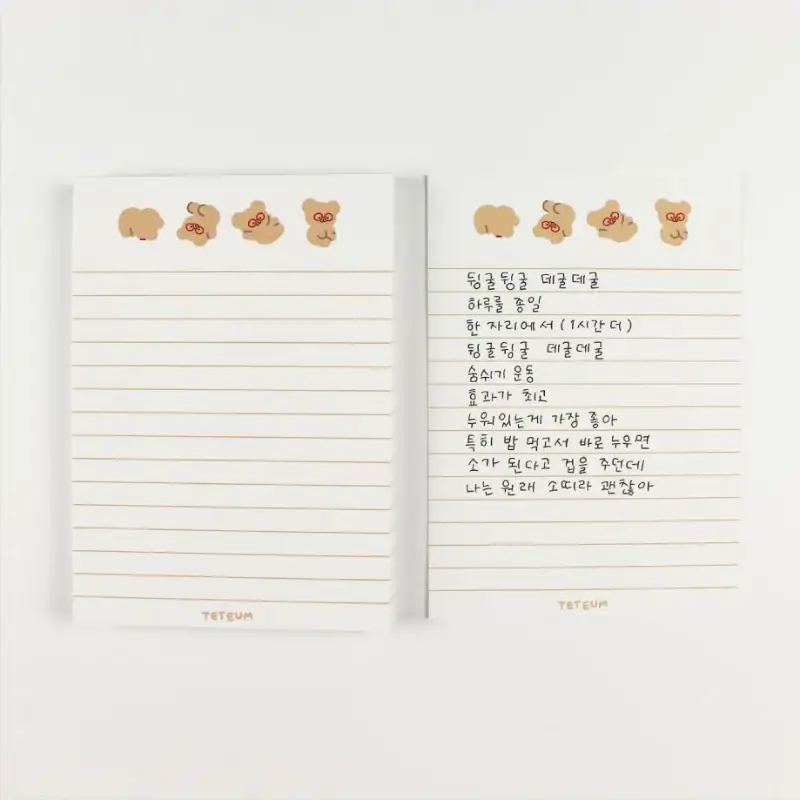 뒹굴뒹굴 데굴데굴
하루를 종일
한 자리에서 (1시간 더)
뒹굴뒹굴 데굴데굴
숨쉬기 운동
효과가 최고
누워있는게 가장 좋아
특히 밥 먹고서 바로 누우면
소가 된다고 겁을 주던데
나는 원래 소띠라 괜찮아
TETEUM
TETEUM